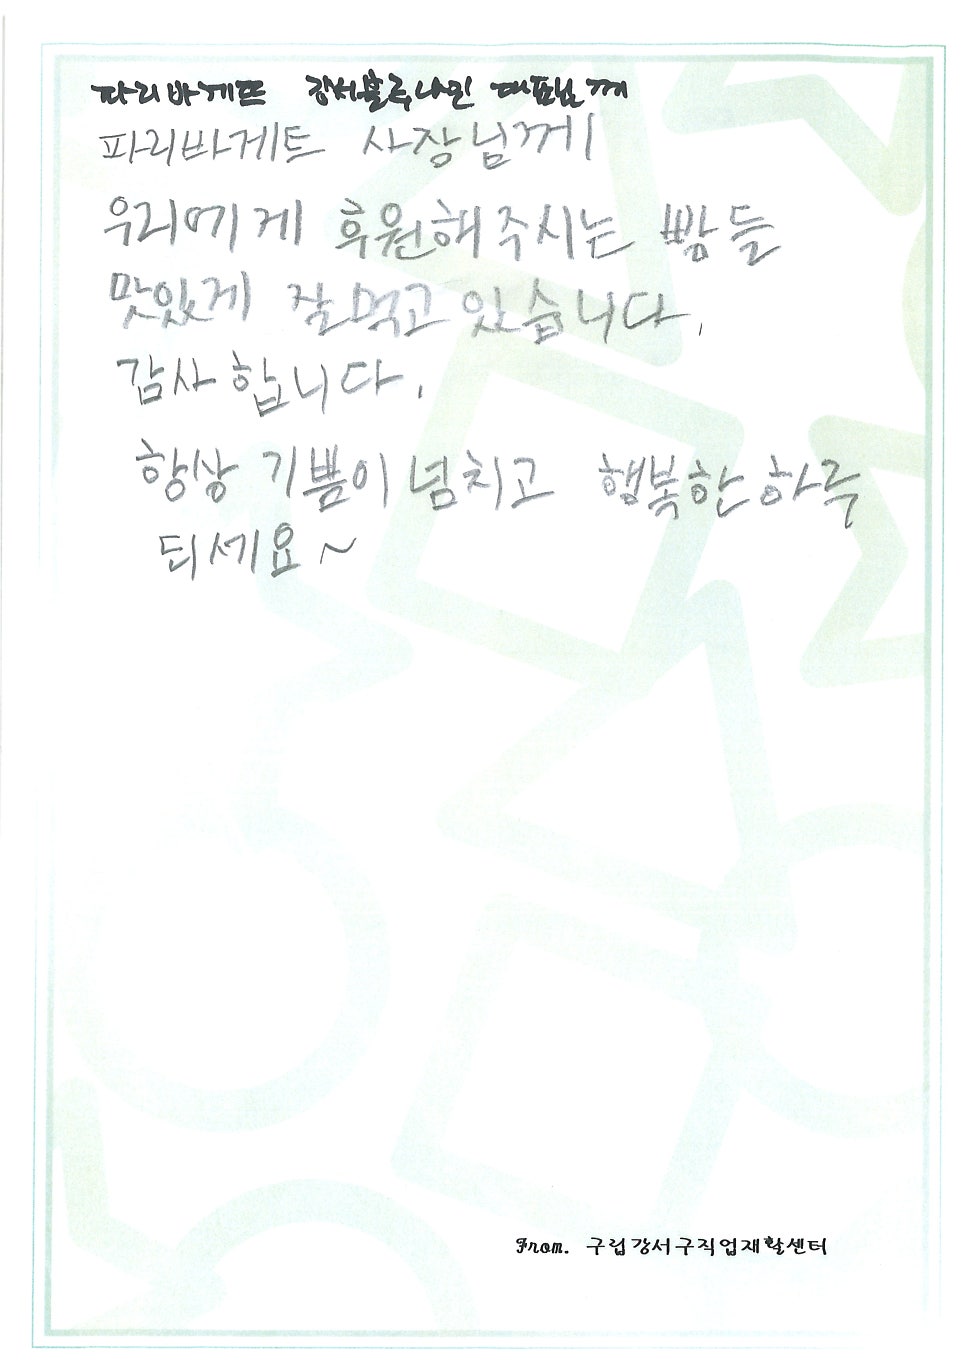 파리바게뜨 강서블루나인 대표님께
파리바게트 사장님께
우리에게 후원해주시는 빵들
맛있게 잘먹고있습니다.
감사합니다.
항상 기쁨이 넘치고 행복한하루
되세요~
From. 구립강서구직업재활센터